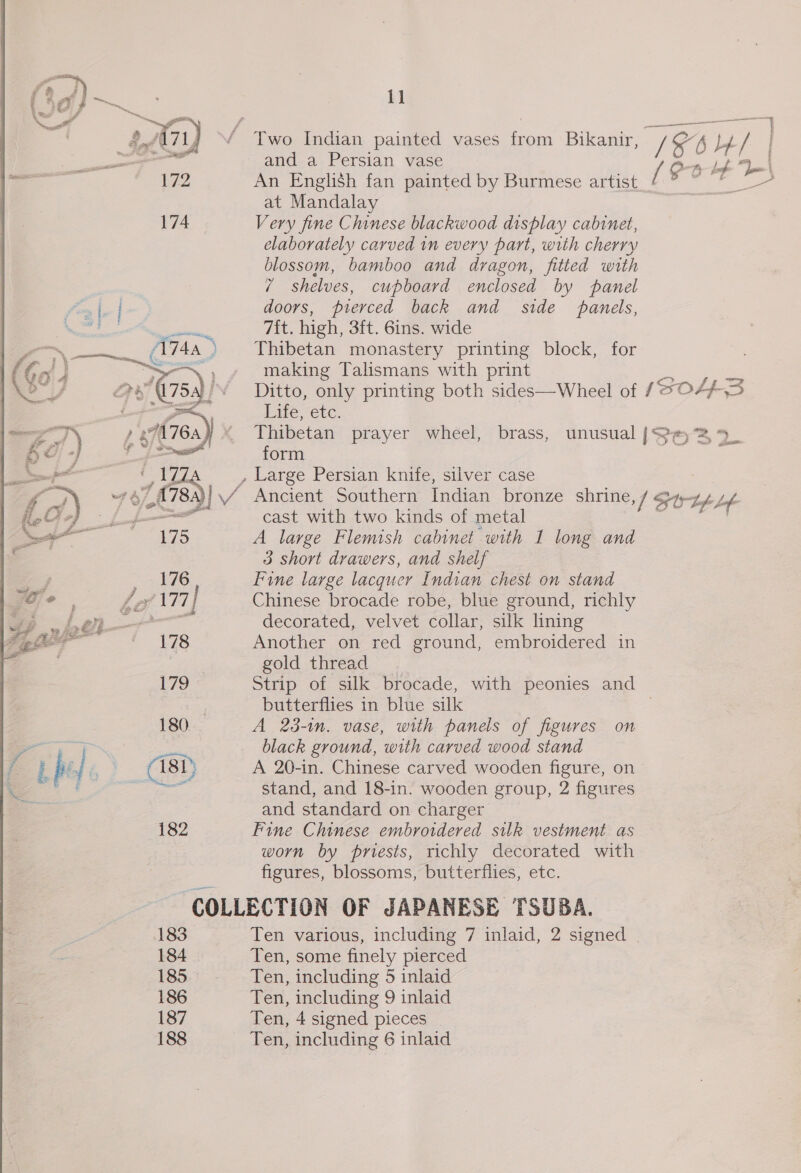 11
171 Two Indian painted vases from Bikanir,
and a Persian vase
172 An English fan painted by Burmese artist
at Mandalay
174 Very fine Chinese blackwood display cabinet,
elaborately carved in every part, with cherry
blossom, bamboo and dragon, fitted with
7 shelves, cupboard enclosed by panel
doors, pierced back and side panels,
7ft. high, 3ft. 6ins. wide
174A Thibetan monastery printing block, for
making Talismans with print
175A Ditto, only printing both sides—Wheel of
Life, etc.
176A Thibetan prayer wheel, brass, unusual
form
177A Large Persian knife, silver case
178A Ancient Southern Indian bronze shrine,
cast with two kinds of metal
175 A large Flemish cabinet with 1 long and
3 short drawers, and shelf
176 Fine large lacquer Indian chest on stand
177 Chinese brocade robe, blue ground, richly
decorated, velvet collar, silk lining
178 Another on red ground, embroidered in
gold thread
179 Strip of silk brocade, with peonies and
butterflies in blue silk
180 A 23-in. vase, with panels of figures on
black ground, with carved wood stand
181 A 20-in. Chinese carved wooden figure, on
stand, and 18-in. wooden group, 2 figures
and standard on charger
182 Fine Chinese embroidered silk vestment as
worn by priests, richly decorated with
figures, blossoms, butterflies, etc.
COLLECTION OF JAPANESE TSUBA.
183 Ten various, including 7 inlaid, 2 signed
184 Ten, some finely pierced
185 Ten, including 5 inlaid
186 Ten, including 9 inlaid
187 Ten, 4 signed pieces
188 Ten, including 6 inlaid